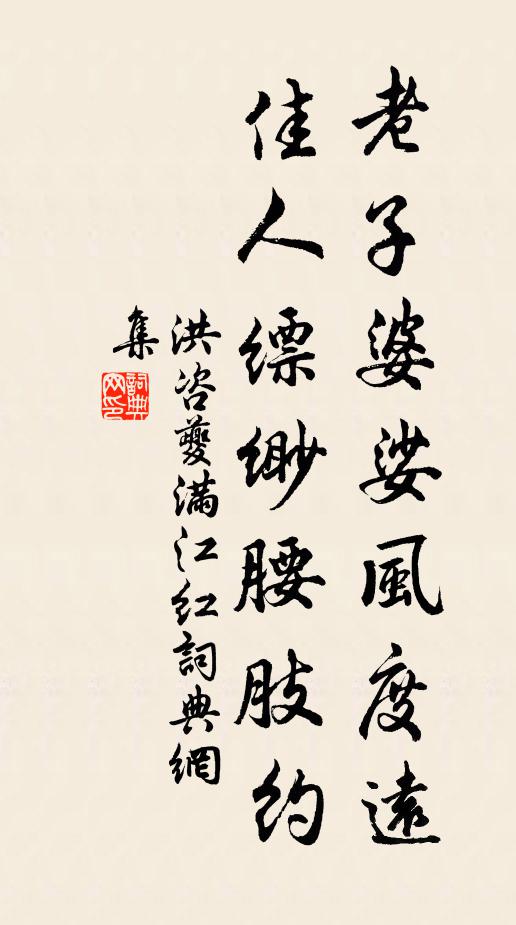 老子婆娑風度遠
佳人縹緲腰肢約
洪咨夔滿江紅詞典網
集
詞典網印